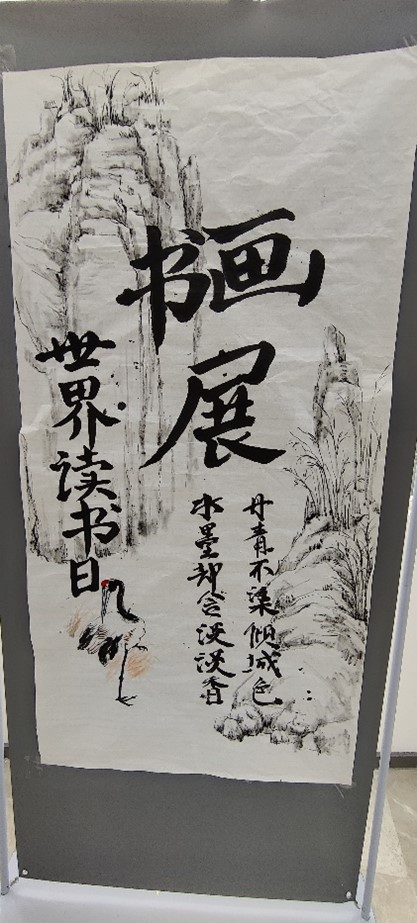 书画
展
世界读书日
丹青不染倾城色
水墨却含淡淡香